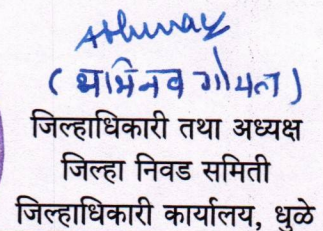 Abhinay
(अभिनव गोयल)
जिल्हाधिकारी तथा अध्यक्ष
जिल्हा निवड समिती
जिल्हाधिकारी कार्यालय, धुळे